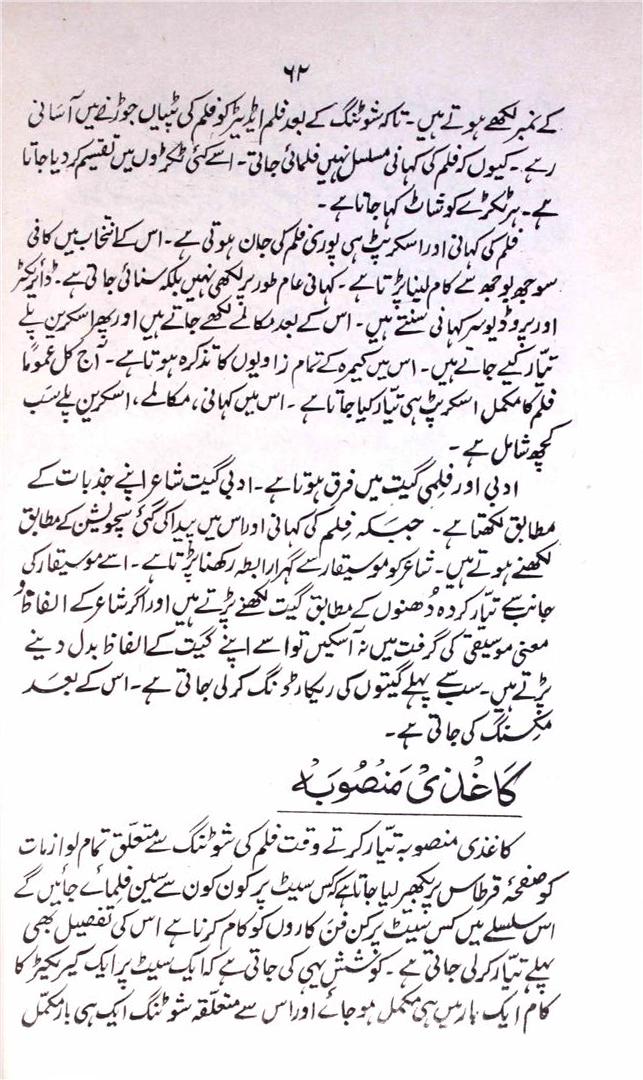 ۶۲
کے نمبر لکھے ہوتے ہیں۔ تاکہ شوٹنگ کے بعد فلم ایڈیٹر کو فلم کی ٹپیاں جوڑنے میں آسانی
رہے۔ کیوں کہ فلم کی کہانی مسلسل نہیں فلمائی جاتی۔ اسے کئی ٹکڑوں میں تقسیم کر دیا جاتا
ہے۔ ہر ٹکڑے کو شاٹ کہا جاتا ہے۔
فلم کی کہانی اور اسکرپٹ ہی پوری فلم کی جان ہوتی ہے۔ اس کے انتخاب میں کافی
سوجھ بوجھ سے کام لینا پڑتا ہے۔ کہانی عام طور پر لکھی نہیں بلکہ سنائی جاتی ہے۔ ڈائریکٹر
اور پروڈیوسر کہانی سنتے ہیں۔ اس کے بعد مکالمے لکھے جاتے ہیں اور پھر اسکرین پلے
تیّار کیے جاتے ہیں۔ اس میں کیمرہ کے تمام زاویوں کا تذکرہ ہوتا ہے۔ آج کل عموماً
فلم کا مکمل اسکرپٹ ہی تیّار کیا جاتا ہے۔ اس میں کہانی، مکالمے، اسکرین پلے سَب
کچھ شامل ہے۔
ادبی اور فلمی گیت میں فرق ہوتا ہے۔ ادبی گیت شاعر اپنے جذبات کے
مطابق لکھتا ہے۔ جبکہ فلم کی کہانی اور اس میں پیدا کی گئی سچویشن کے مطابق
لکھنے ہوتے ہیں۔ شاعر کو موسیقار سے گہرا رابطہ رکھنا پڑتا ہے۔ اسے موسیقار کی
جانب سے تیّار کردہ دُھنوں کے مطابق گیت لکھنے پڑتے ہیں اور اگر شاعر کے الفاظ و
معنی موسیقی کی گرفت میں نہ آسکیں تو اسے اپنے گیت کے الفاظ بدل دینے
پڑتے ہیں۔ سب سے پہلے گیتوں کی ریکارڈنگ کر لی جاتی ہے۔ اس کے بعد
مکسنگ کی جاتی ہے۔
کاغذی منصوبہ
کاغذی منصوبہ تیّار کرتے وقت فلم کی شوٹنگ سے متعلّق تمام لوازمات
کو صفحۂ قرطاس پر بکھیر لیا جاتا ہے کس سیٹ پر کون کون سے سین فلمائے جائیں گے
اس سلسلے میں کس سیٹ پر کن فن کاروں کو کام کرنا ہے اس کی تفصیل بھی
پہلے تیّار کر لی جاتی ہے۔ کوشش یہی کی جاتی ہے کہ ایک سیٹ پر ایک کیریکیڑ کا
کام ایک بار میں ہی مکمل ہو جائے اور اس سے متعلّقہ شوٹنگ ایک ہی بار مکمّل